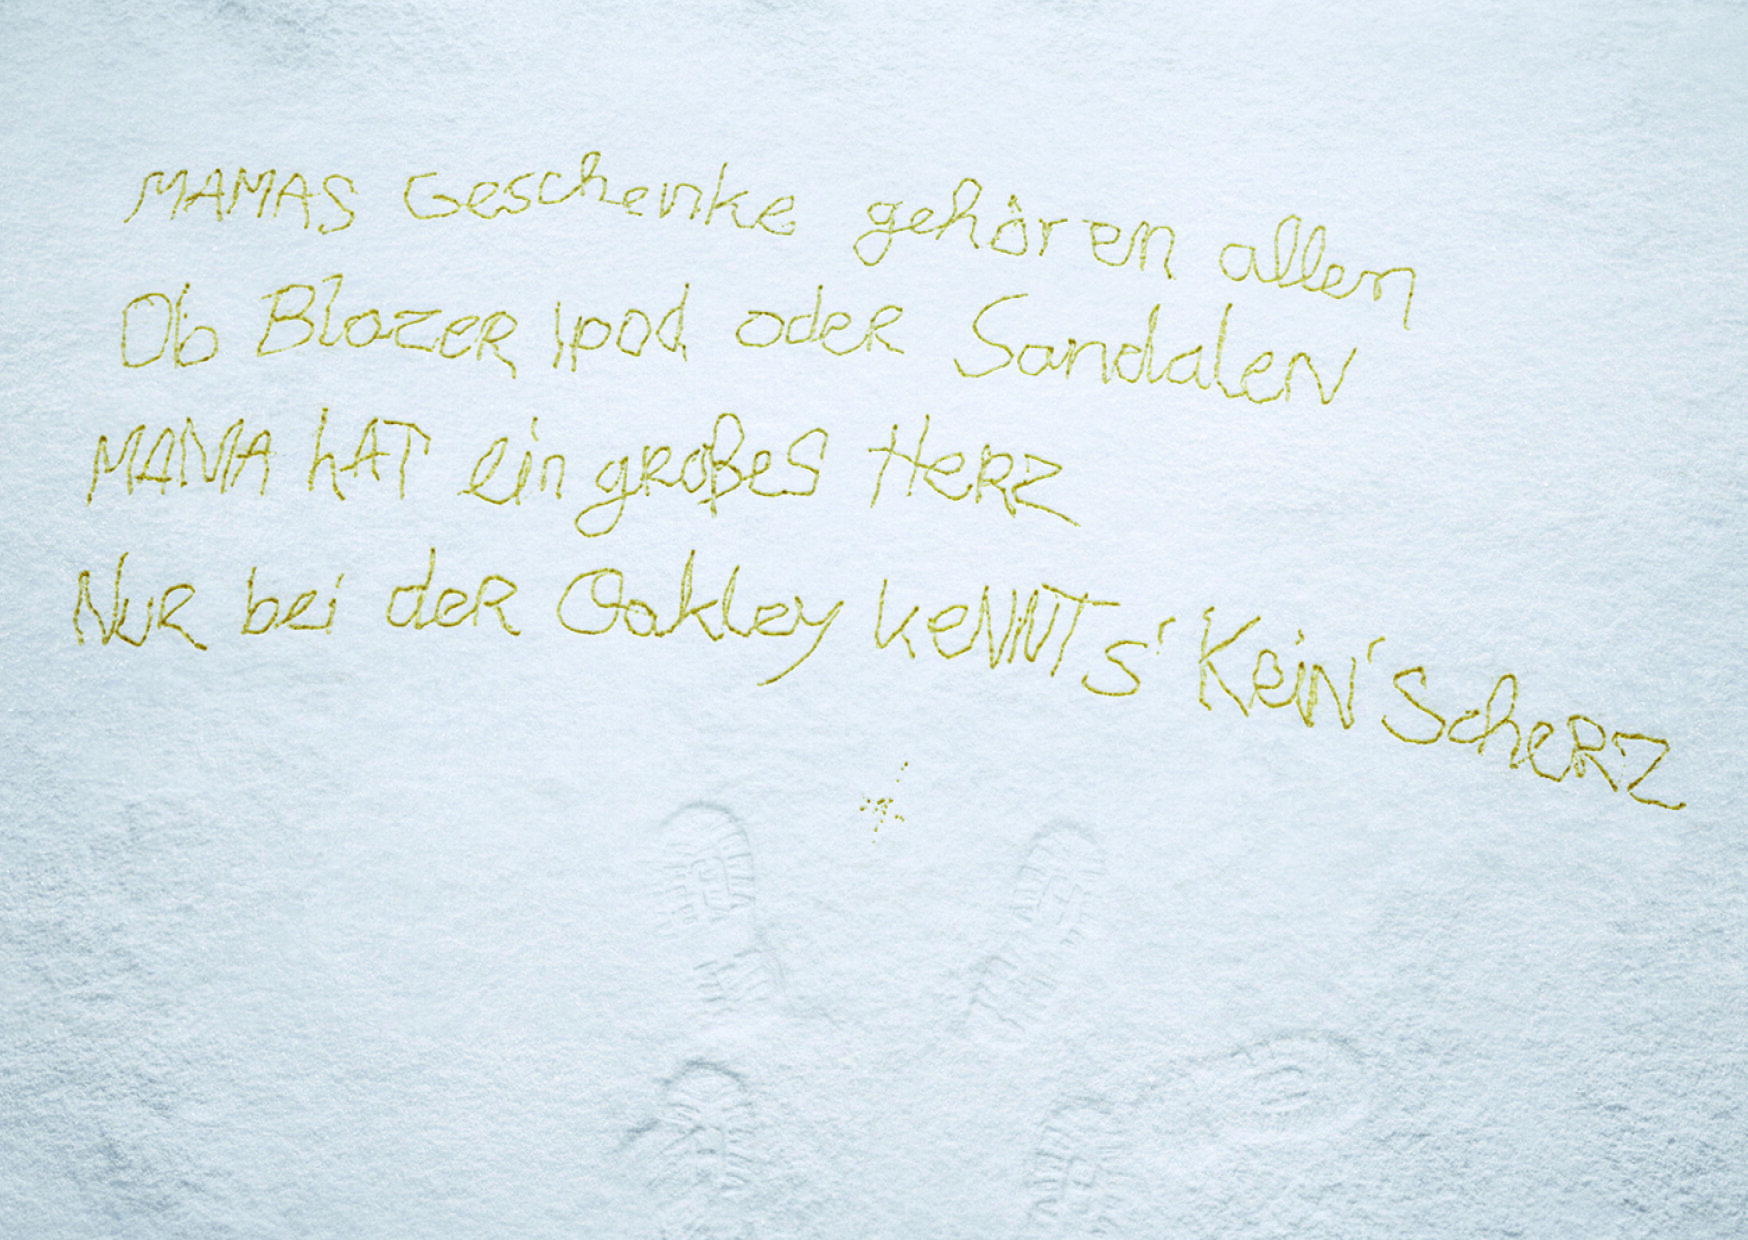 MAMAS Geschenke gehören allen
Ob Blazer Ipod oder Sandalen
MAMA hAT ein großes Herz
Nur bei der Oakley keNNT s' Kein' Scherz